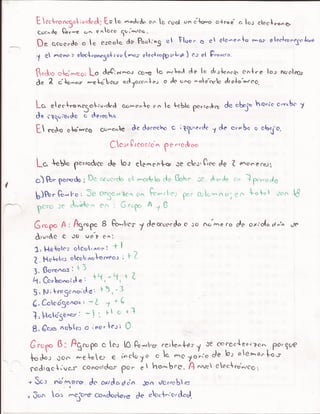 Electronegatividad: Es la medida en la cual un átomo atrae a los electrones
cuando forma un enlace químico.
De acuerdo a la escala de Pauling el Flúor es el elemento más electronegativo
y el menos electronegativo (más electropositivo) es el Francio.
Radio atómico: Lo definimos como la mitad de la distancia entre los núcleos
de 2 átomos metálicos adyacentes o de una molécula diatómica.
La electronegatividad aumenta en la tabla periódica de abajo hacia arriba y
de izquierda a derecha
El radio atómico aumenta de derecha a izquierda y de arriba a abajo.
Clasificación periódica
La tabla periódica de los elementos se clasifica de 2 maneras:
a) Por periodo: De acuerdo al modelo de Bohr se divide en 7 periodos
b) Por Familia: Se organizan en familias por columnas, en total son 18
pero se dividen en: Grupo A y B
Grupo A: Agrupa 8 familias y de acuerdo a su número de oxidación se
divide a su vez en:
1. Metales alcalinos: +1
2. Metales alcalinotérreos: +2
3. Boranos: +3
4. Carbonoides: +4, -4, +2
5. Nitrogenoides: +5, -3
6. Calcógenos: -2 y +6
7. Halógenos: -1
8. Gases nobles o inertes: 0
Grupo B: Agrupa a las 10 familias restantes y se caracterizan porque
todos son metales e incluye a la mayoría de los elementos
radiactivos conocidos por el hombre. A nivel electrónico:
Sus número de oxidación son variables
Son los mejores conductores de electricidad